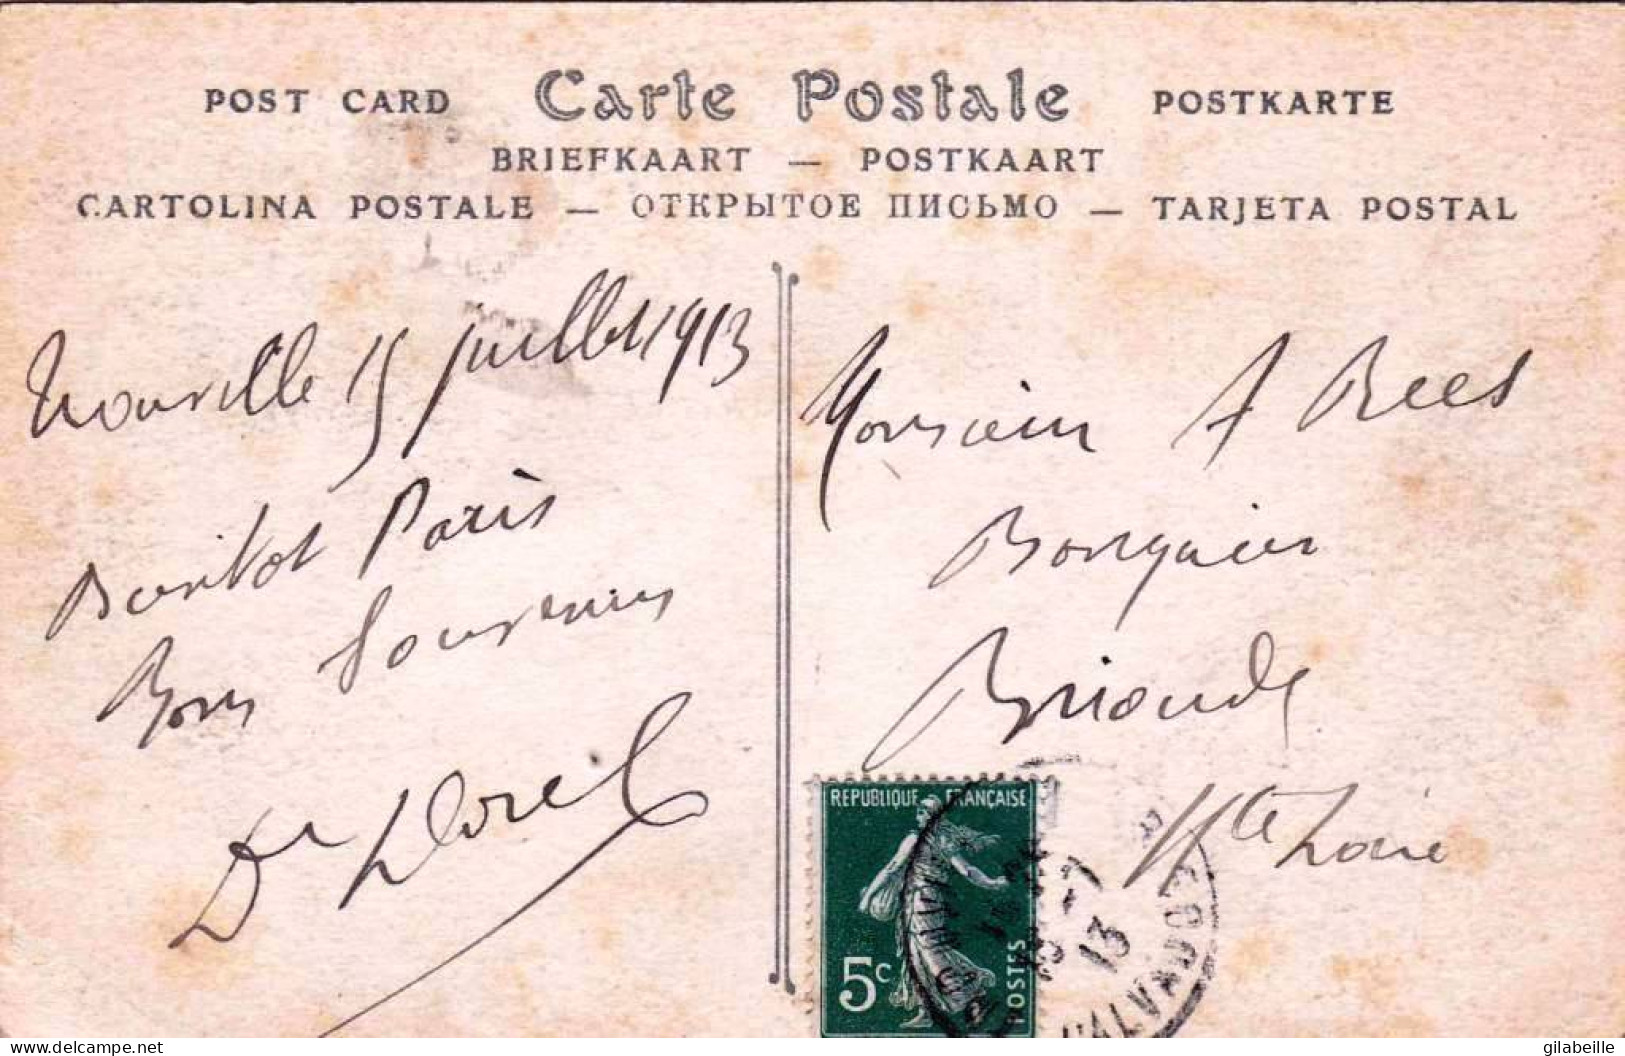 POST CARD Carte Postale POSTKARTE
BRIEFKAART — POSTKAART
CARTOLINA POSTALE — ОТКРЫТОЕ ПИСЬМО — TARJETA POSTAL
15 juillet 1913
Paris
Bons Souvenirs
Dr
Monsieur A Rees
Banquier
Brioude
Hte Loire
REPUBLIQUE FRANÇAISE
5c
POSTES
13
CALVADOS
delcampe.net
gilabeille